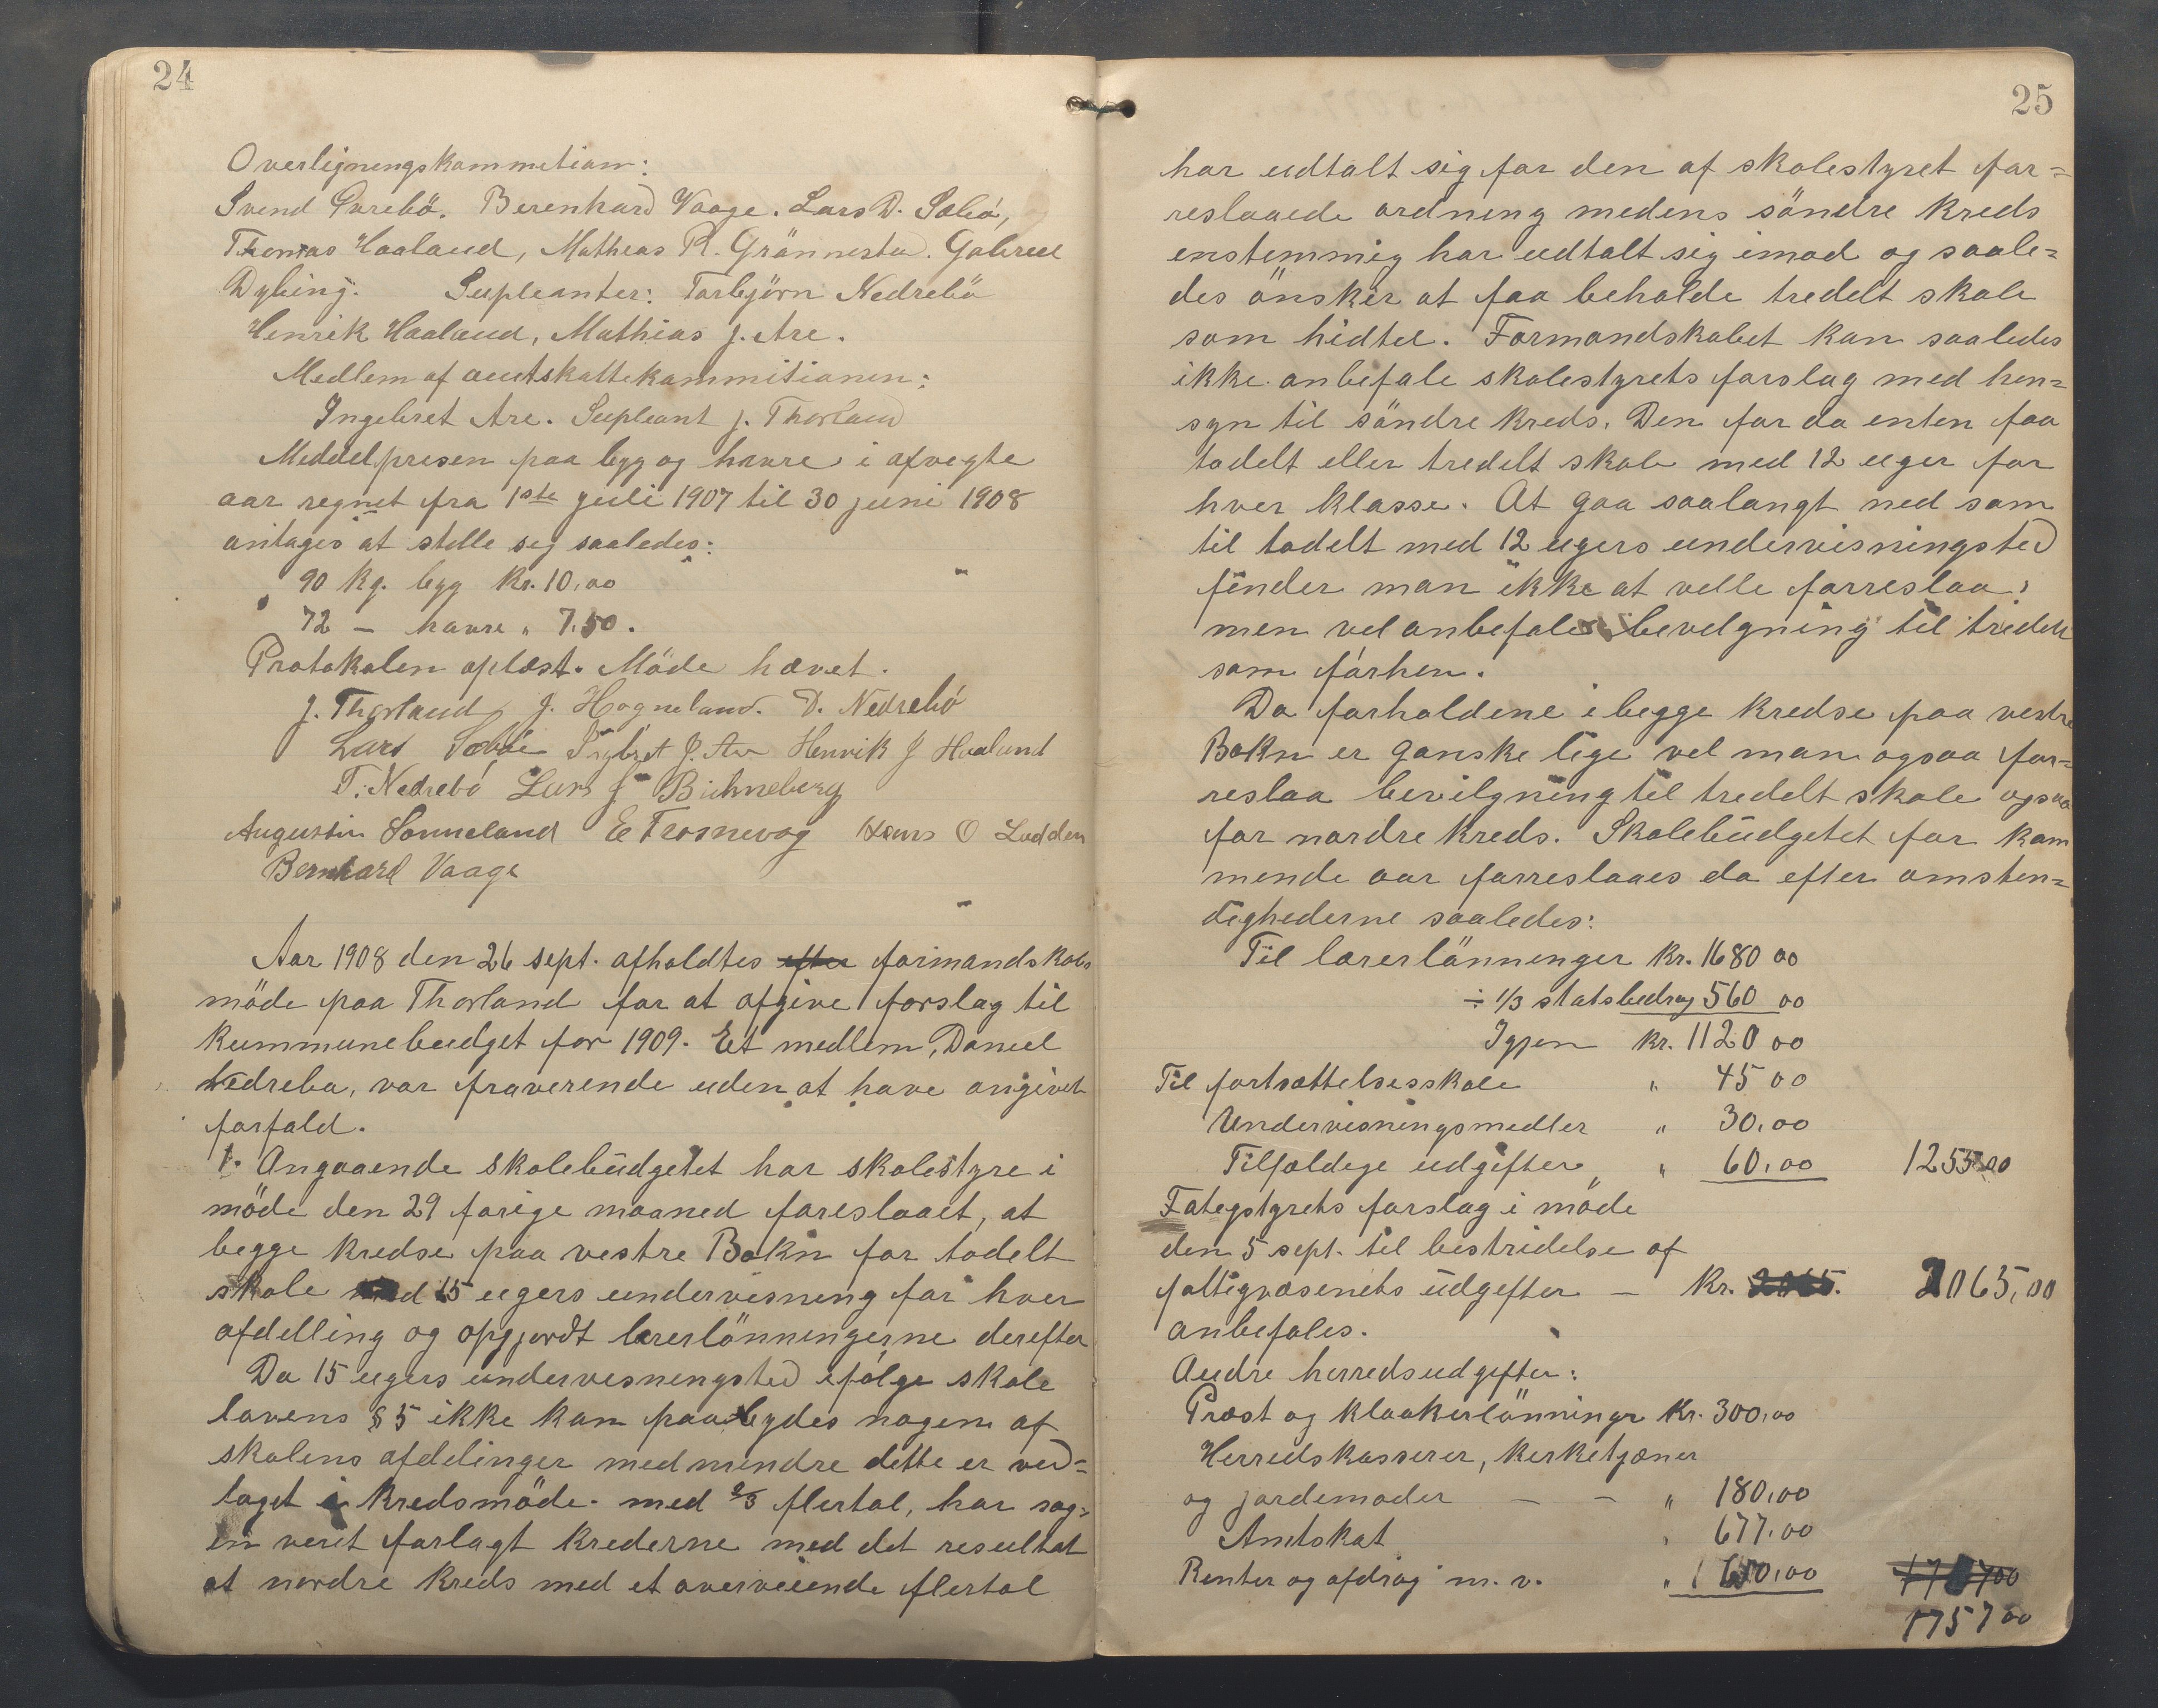 24
Overligningskommetion:
Svend Øvrebö. Berenhard Vaage. Lars D. Sæbö,
Thomas Haaland, Mathias R. Grönnestad. Gabriel
Dybing. Supleanter: Torbjörn Nedrebö
Henrik Haaland, Mathias J. Are.
Medlem af amtskattekommitionen:
Ingebret Are. Supleant J. Thorland
Meddelprisen paa byg og havre i afvegte
aar regnet fra 1ste juli 1907 til 30 juni 1908
antages at stelle seg saaledes:
90 kg. byg kr. 10,00
72 — havre " 7.50.
Protokolen oplæst. Möde hævet.
J. Thorland J. Hogneland. D. Nedrebö
Lars Sæbö Ingbret J. Are Henrik J Haaland
T. Nedrebö Lars J Börneberg
Augustin Sonneland E Trosnevog Lars O Lodden
Bernhard Vaage
Aar 1908 den 26 sept. afholdtes efter formandskabs
möde paa Thorland for at afgive forslag til
kummunebudget for 1909. Et medlem, Daniel
Nedrebø, var fraverende uden at have angivet
forfald.
1. Angaaende skolebudgetet har skolestyre i
möde den 29 forige maaned foreslaaet, at
begge kredse paa vestre Bokn for todelt
skole med 15 ugers undervisning for hver
afdelling og opgjordt lærerlönningerne derefter
Da 15 ugers undervisningsted ifölge skole
lovens § 5 ikke kan paabydes nogen af
skolens afdelinger medmindre dette er ved=
taget i kredsmöde med 2/3 flertal, har sag=
en veret forlagt krederne med det resultat
at nordre kreds med et overveiende flertal
25
har udtalt sig for den af skolestyret for=
reslaaede ordning medens söndre kreds
enstemmig har udtalt sig imod og saale=
des önsker at faa beholde tredelt skole
som hidtil. Formandskabet kan saaledes
ikke anbefale skolestyrets forslag med hen=
syn til söndre kreds. Den for da enten faa
todelt eller tredelt skole med 12 uger for
hver klasse. At gaa saalangt ned som
til todelt med 12 ugers undervisningsted
finder man ikke at velle forreslaa;
men vel anbefale bevelgning til tredelt
som förhen.
Da forholdene i begge kredse paa vestre
Bokn er ganske lige vel man ogsaa for=
reslaa bevilgning til tredelt skole ogsaa
for nordre kreds. Skolebudgetet for kom
mende aar forreslaaes da efter omsten=
deghederne saaledes:
Til lærerlönninger kr. 1680 00
÷ 1/3 statsbedrag 560 00
Igjen kr. 1120 00
Til fortsættelsesskole " 45 00
Undervisningsmedler " 30,00
Tilfældige udgifter " 60,00 1255 00
Fategstyrets forslag i möde
den 5 sept. til bestridelse af
fattigvæsenets udgifter — kr. 2065. 2065,00
anbefales.
Andre herredsudgifter:
Præst og klokkerlönninger kr. 300,00
Herredskasserer, kerketjener
og jordemoder — — " 180,00
Amtskat " 677,00
Renter og afdrag m. v. " 600,00
1757 00